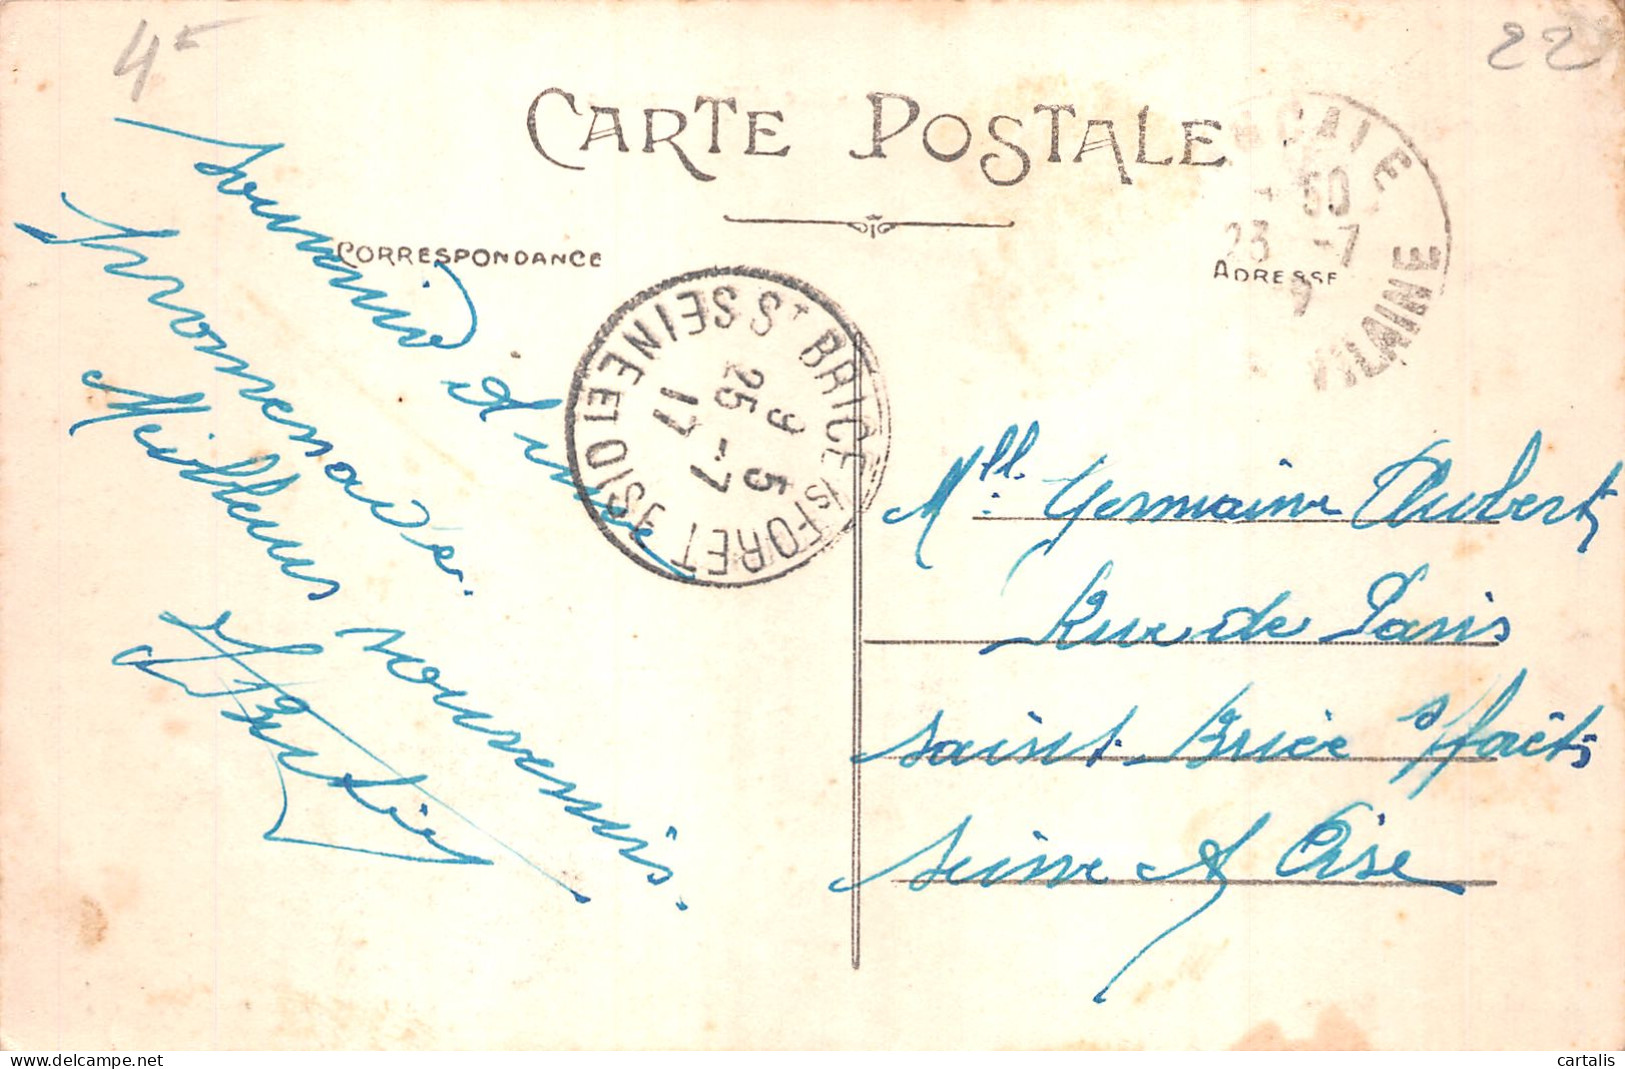 4
22
CARTE POSTALE
CORRESPONDANCE
ADRESSE
CALE
50
23 -7
VILAINE
ST BRICE Ss FORET
SEINE ET OISE
9 5
25 -7
17
Souvenir d'une
promenade.
Meilleurs souvenirs.
Melle Germaine Aubert
Rue de Paris
Saint-Brice s/forêt
Seine et Oise
cartalis